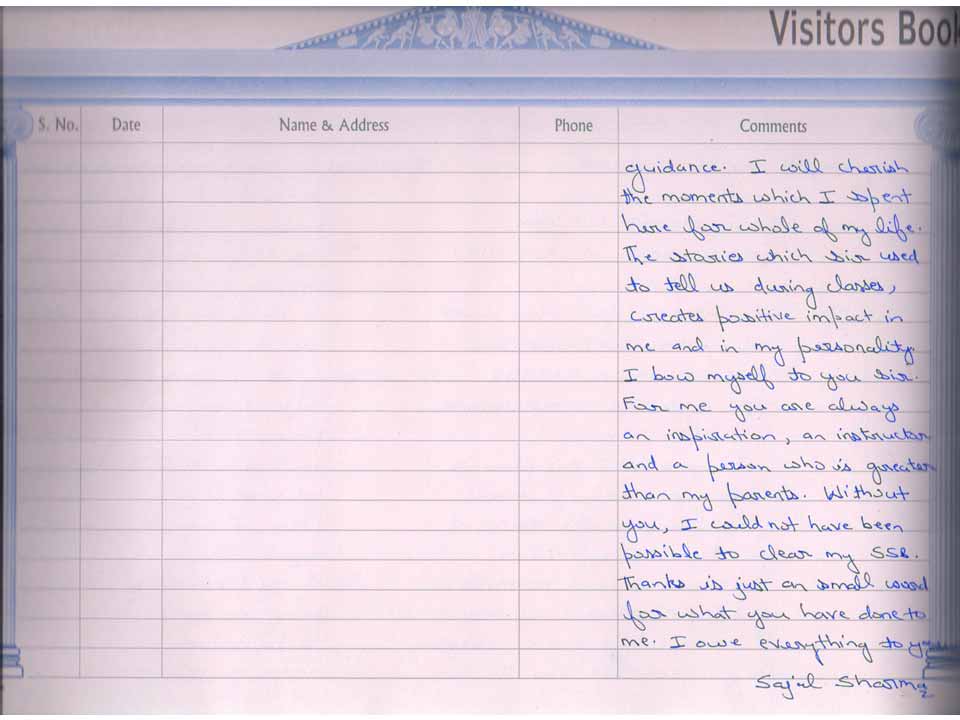 Visitors Book
S. No. Date Name & Address Phone Comments
guidance. I will cherish
the moments which I spent
here for whole of my life.
The stories which sir used
to tell us during classes,
creates positive impact in
me and in my personality.
I bow myself to you sir.
For me you are always
an inspiration, an instructor
and a person who is greater
than my parents. Without
you, I could not have been
possible to clear my SSB.
Thanks is just an small word
for what you have done to
me. I owe everything to
Sajal Sharma